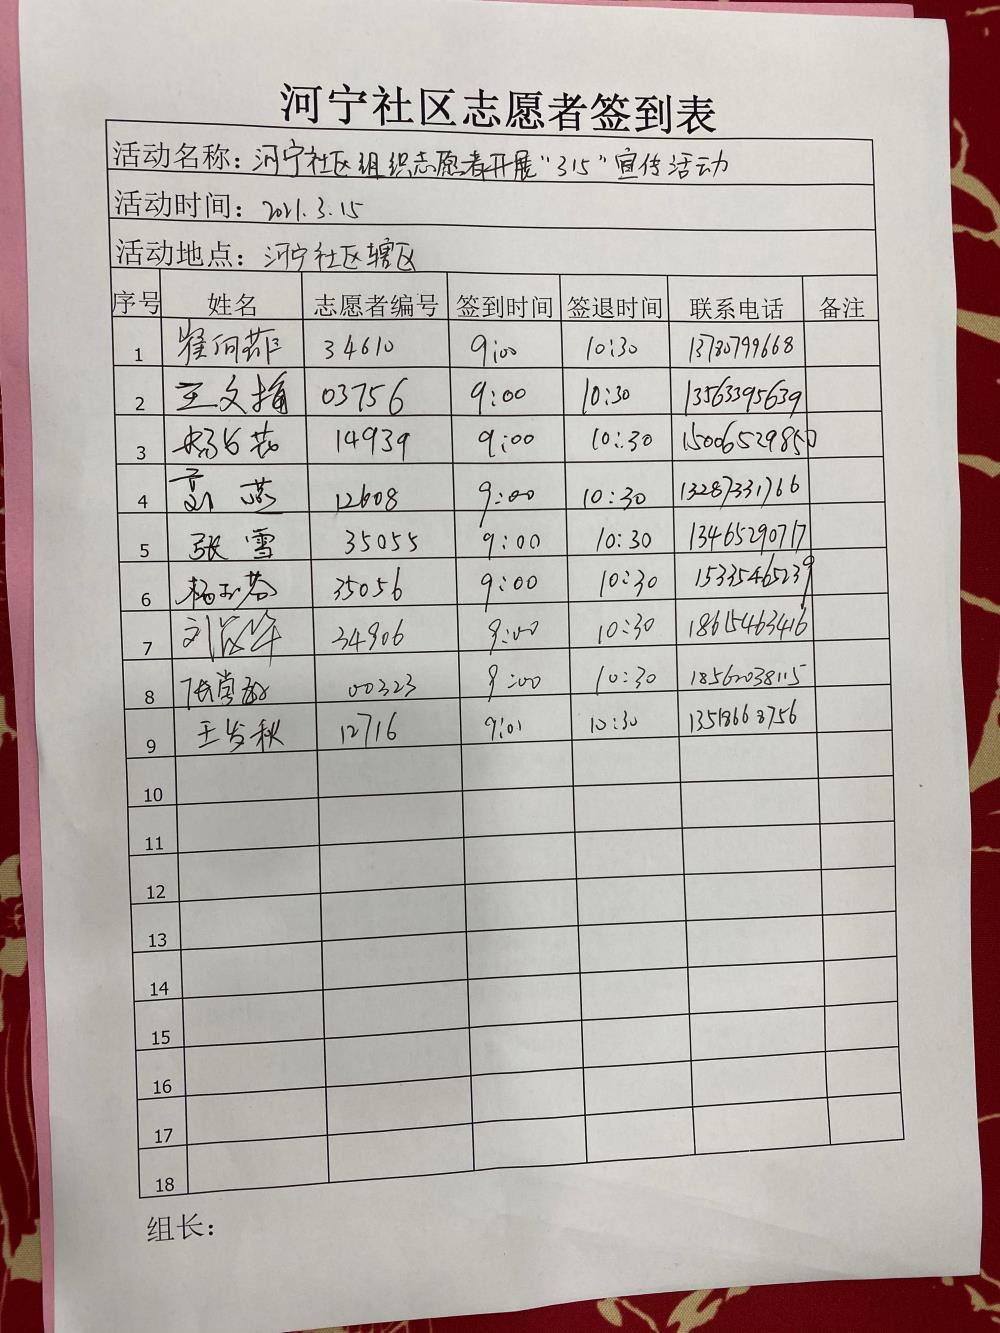 河宁社区志愿者签到表
活动名称：河宁社区组织志愿者开展“315”宣传活动
活动时间：2021.3.15
活动地点：河宁社区辖区
序号 姓名 志愿者编号 签到时间 签退时间 联系电话 备注
1 34610 9:00 10:30 13780799668
2 王文 03756 9:00 10:30 13563395639
3 14939 9:00 10:30 15006529850
4 燕 12608 9:00 10:30 13287331766
5 张雪 35055 9:00 10:30 13465290717
6 杨 35056 9:00 10:30 15335465239
7 刘 34906 9:00 10:30 18615463416
8 00323 9:00 10:30 18562038115
9 王 秋 12716 9:01 10:30 13518668756
10
11
12
13
14
15
16
17
18
组长：